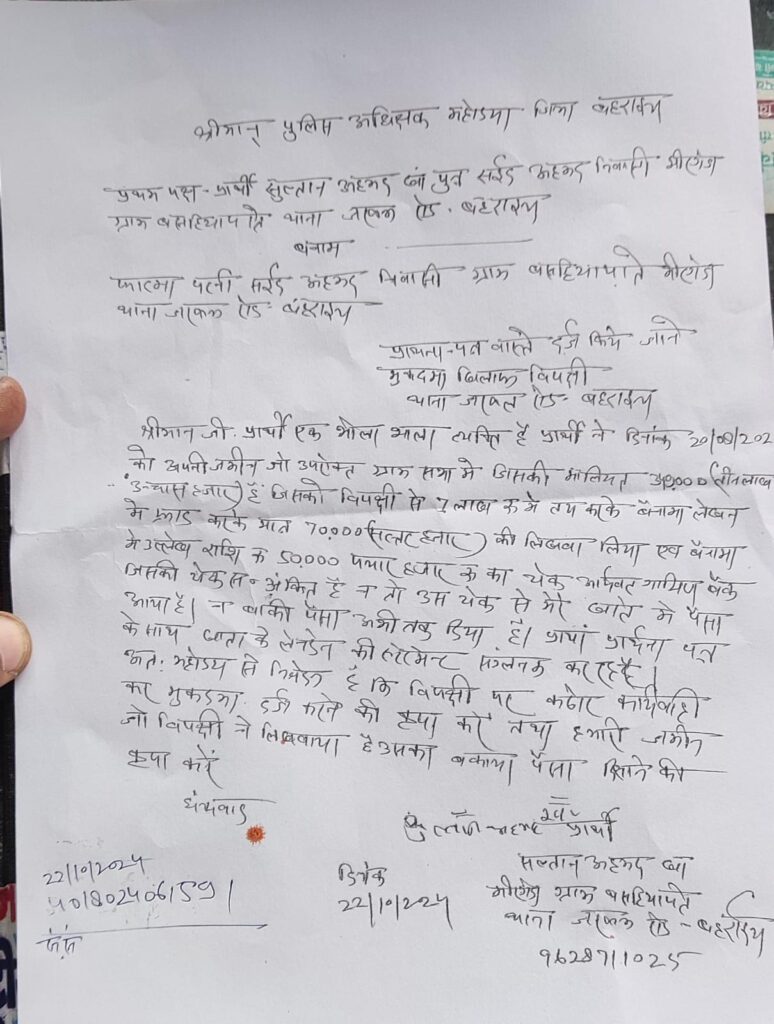 श्रीमान् पुलिस अधिक्षक महोदया जिला बहराइच
प्रथम पक्ष - प्रार्थी सुल्तान अहमद खां पुत्र सईद अहमद निवासी मीरगंज
ग्राम बसहियापाते थाना जरवल रोड - बहराइच
बनाम
फातमा पत्नी सईद अहमद निवासी ग्राम बसहियापाते मीरगंज
थाना जरवल रोड - बहराइच
प्रार्थना-पत्र वास्ते दर्ज किये जाने
मुकदमा खिलाफ विपक्षी
थाना जरवल रोड - बहराइच
श्रीमान जी. प्रार्थी एक भोला भाला व्यक्ति है प्रार्थी ने दिनांक 20/08/202
को अपनी जमीन जो उपरोक्त ग्राम सभा मे जिसकी मालियत (तीन लाख
उन्चास हजार) है जिसको विपक्षी से लाख रू मे तय करके बैनामा लेखन
मे फ्राड करके मात्र 70,000 (सत्तर हजार) की लिखवा लिया एवं बैनामा
मे उल्लेख राशि रू 50,000 पचास हजार रू का चेक आर्यावर्त ग्रामिण बैंक
जिसकी चेक स० अंकित है न तो उस चेक से मेरे खाते मे पैसा
आया है। न बाकी पैसा अभी तक दिया है। प्रार्थी प्रार्थना पत्र
के साथ खाता के लेनदेन की स्टेटमेन्ट संलग्नक कर रहा है।
अत: महोदय से निवेदन है कि विपक्षी पर कठोर कार्यवाही
कर मुकदमा दर्ज करने की कृपा करें तथा हमारी जमीन
जो विपक्षी ने लिखवाया है उसका बकाया पैसा दिलाने की
कृपा करें
धन्यवाद
प्रार्थी
सुल्तान अहमद खां
मीरगंज ग्राम बसहियापाते
थाना जरवल रोड - बहराइच
9628711025
दिनांक
22/10/2024
22/10/2024